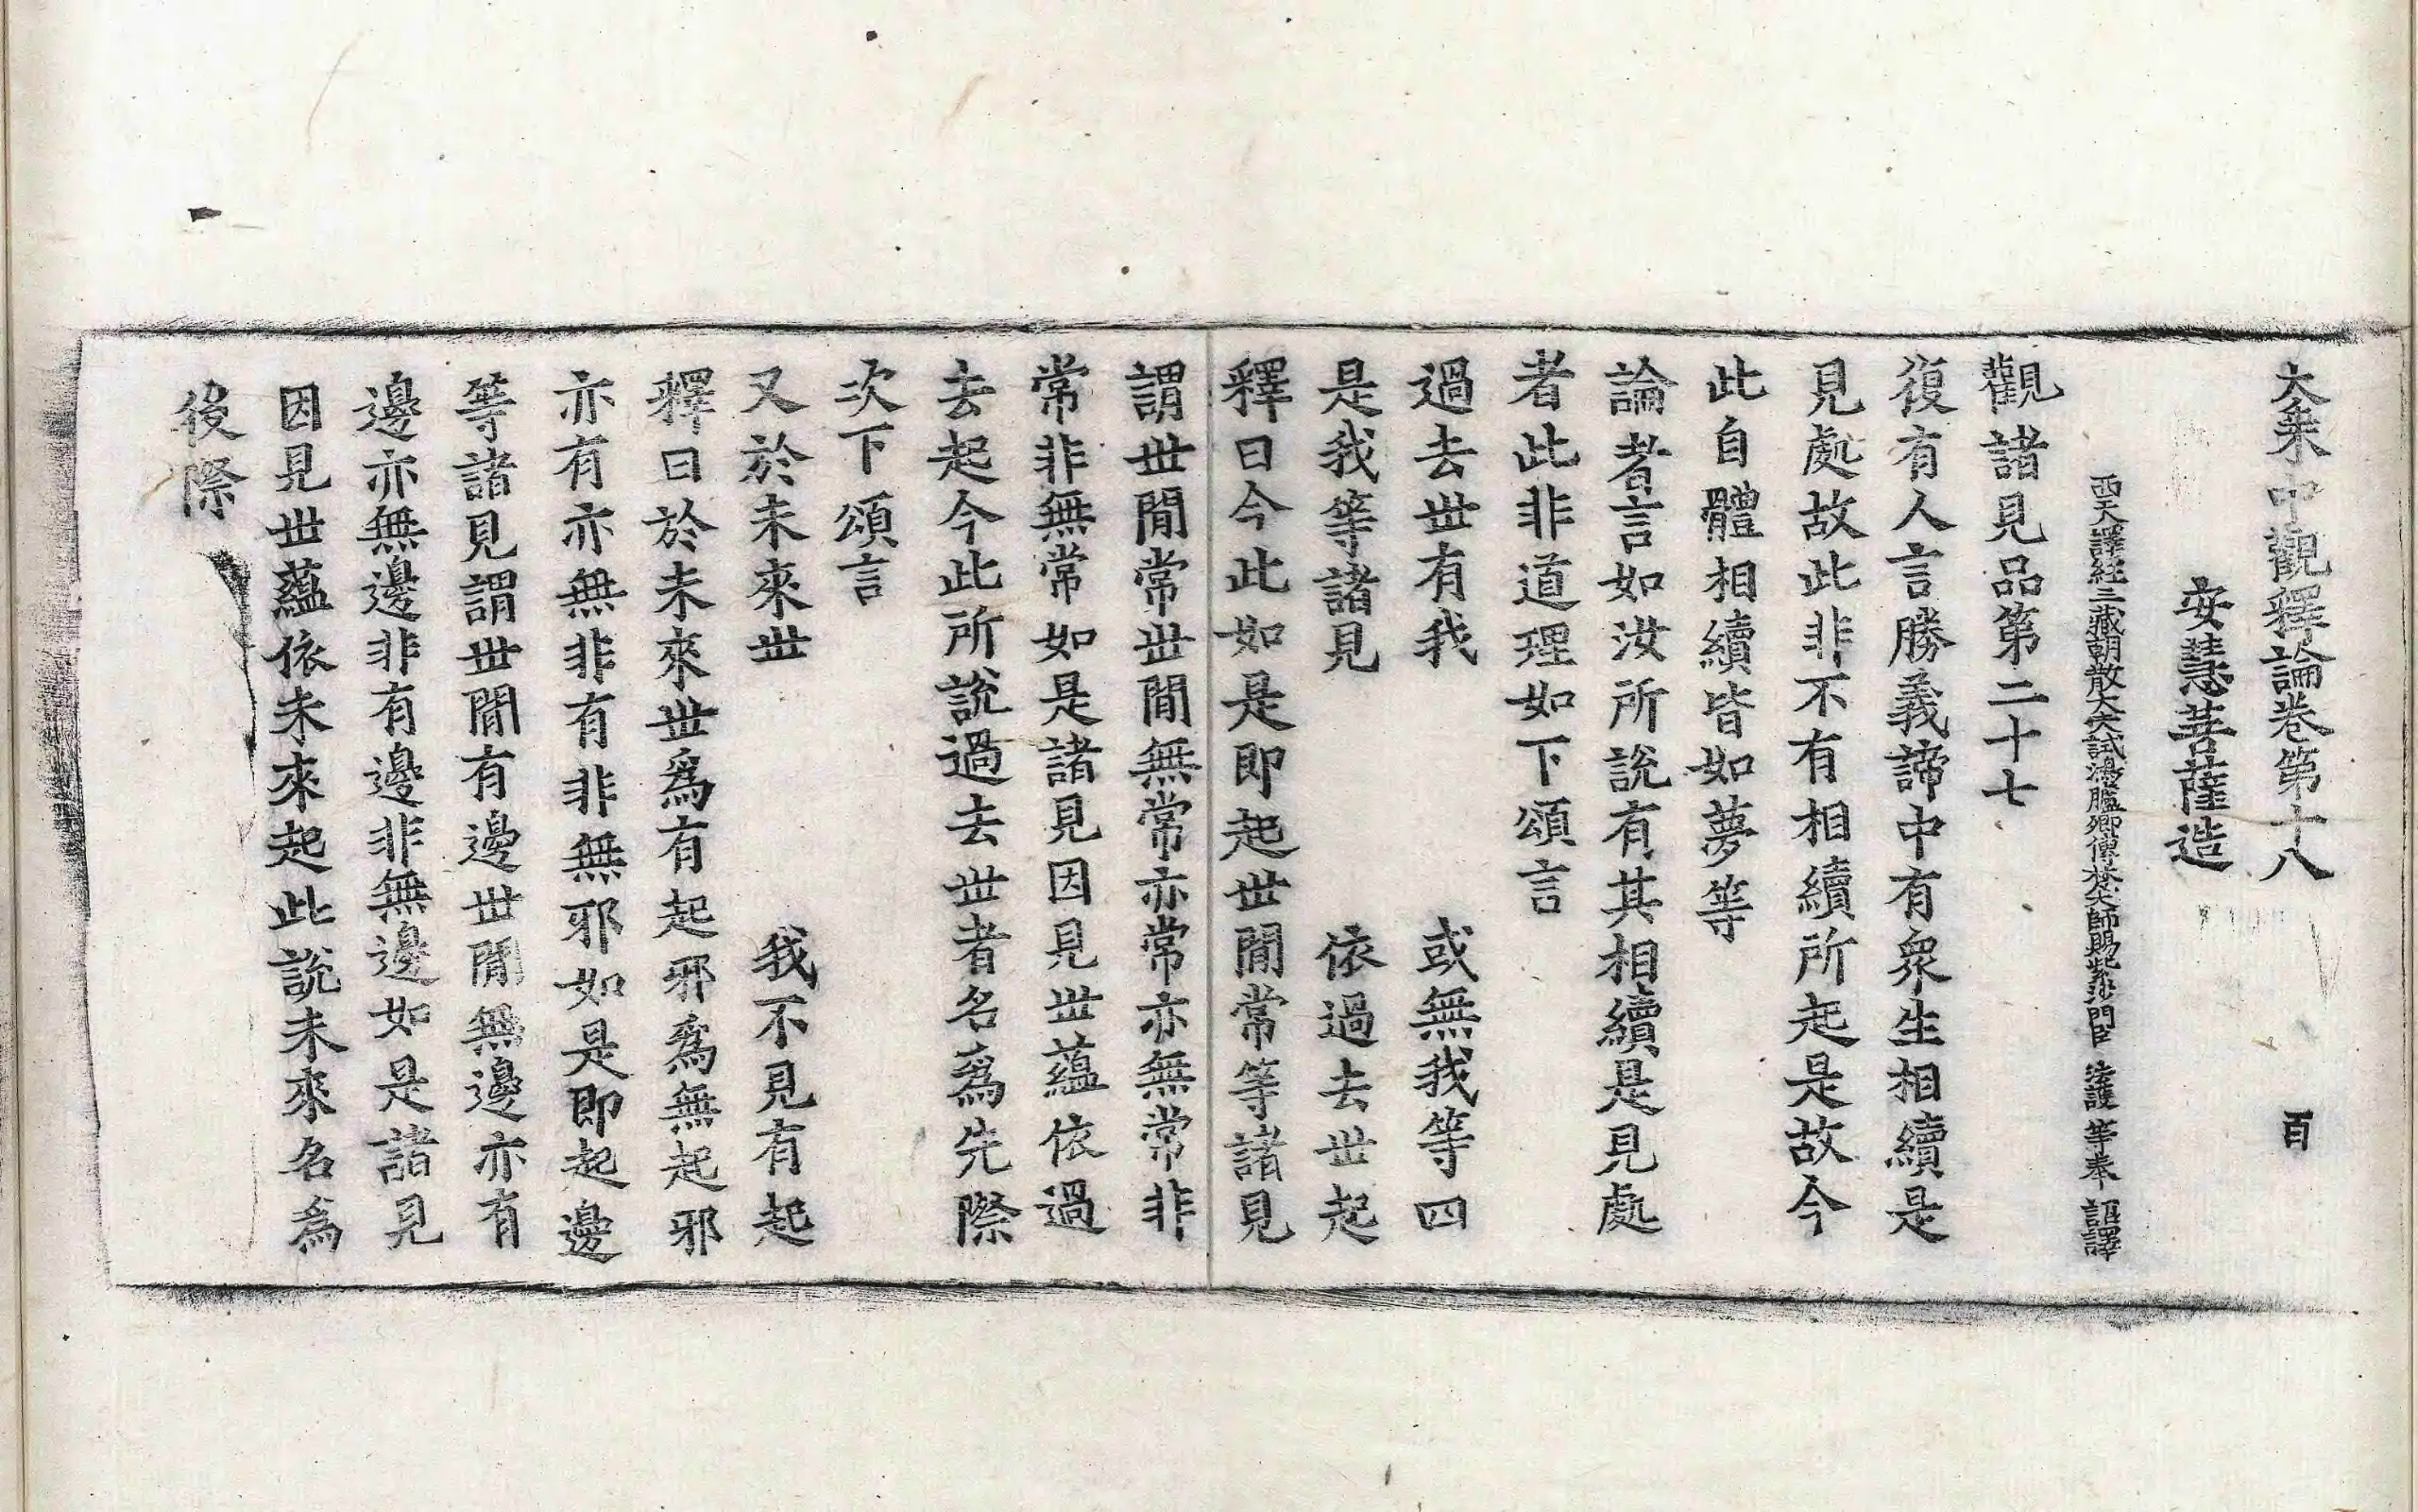 大乗中觀釋論卷第十八 百
安慧菩薩造
西天譯經三藏朝散大夫試鴻臚卿傳梵大師賜紫沙門臣 法護 等奉 詔譯
觀諸見品第二十七
復有人言勝義諦中有衆生相續是
見處故此非不有相續所起是故今
此自體相續皆如夢等
論者言如汝所說有其相續是見處
者此非道理如下頌言
過去世有我 或無我等四
是我等諸見 依過去世起
釋曰今此如是即起世閒常等諸見
謂世閒常世閒無常亦常亦無常非
常非無常如是諸見因見世蘊依過
去起今此所說過去世者名爲先際
次下頌言
又於未來世 我不見有起
釋曰於未來世爲有起邪爲無起邪
亦有亦無非有非無邪如是即起邊
等諸見謂世閒有邊世閒無邊亦有
邊亦無邊非有邊非無邊如是諸見
因見世蘊依未來起此說未來名爲
後際